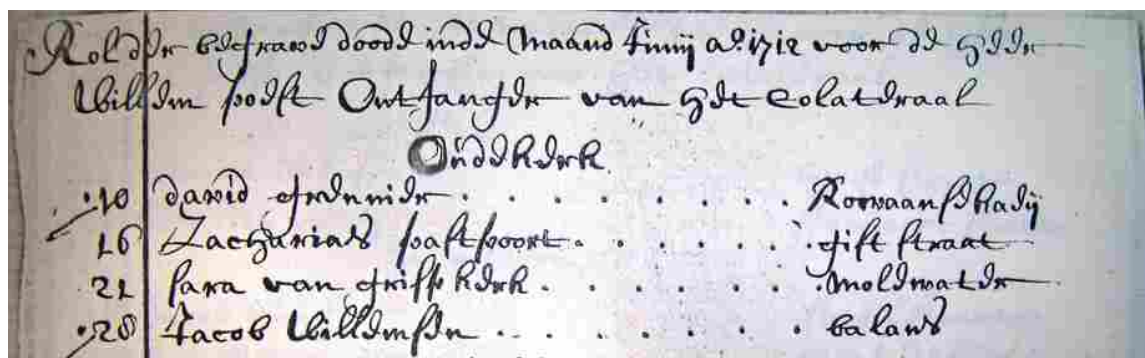 Rol der begrave doode inde Maand Junij ao. 1712 voor de Heer
Willem poest Ontfanger van Het Colateraal
Oudekerk
10 david grenier . . . . . . . Rowaansekadij
16 Zacharias paspoort . . . . . . gist straat
21 sara van grijpskerk . . . . . . molewater
28 Jacob Willemsen . . . . . . balans